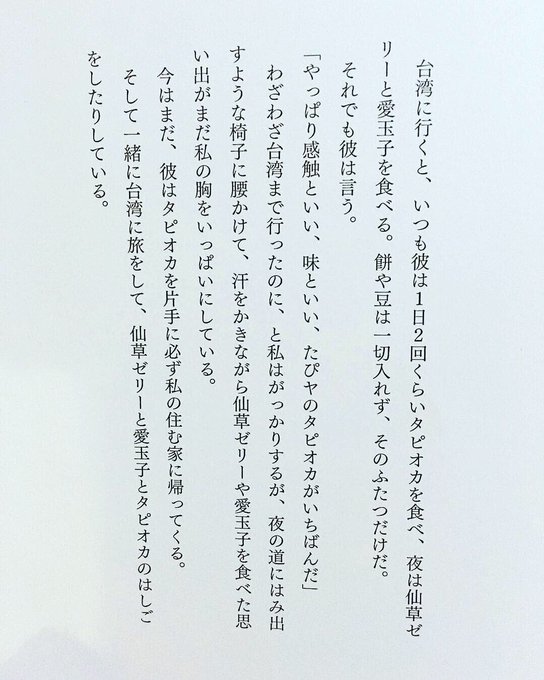 台湾に行くと、いつも彼は１日２回くらいタピオカを食べ、夜は仙草ゼ
リーと愛玉子を食べる。餅や豆は一切入れず、そのふたつだけだ。
　それでも彼は言う。
「やっぱり感触といい、味といい、たぴヤのタピオカがいちばんだ」
　わざわざ台湾まで行ったのに、と私はがっかりするが、夜の道にはみ出
すような椅子に腰かけて、汗をかきながら仙草ゼリーや愛玉子を食べた思
い出がまだ私の胸をいっぱいにしている。
　今はまだ、彼はタピオカを片手に必ず私の住む家に帰ってくる。
　そして一緒に台湾に旅をして、仙草ゼリーと愛玉子とタピオカのはしご
をしたりしている。